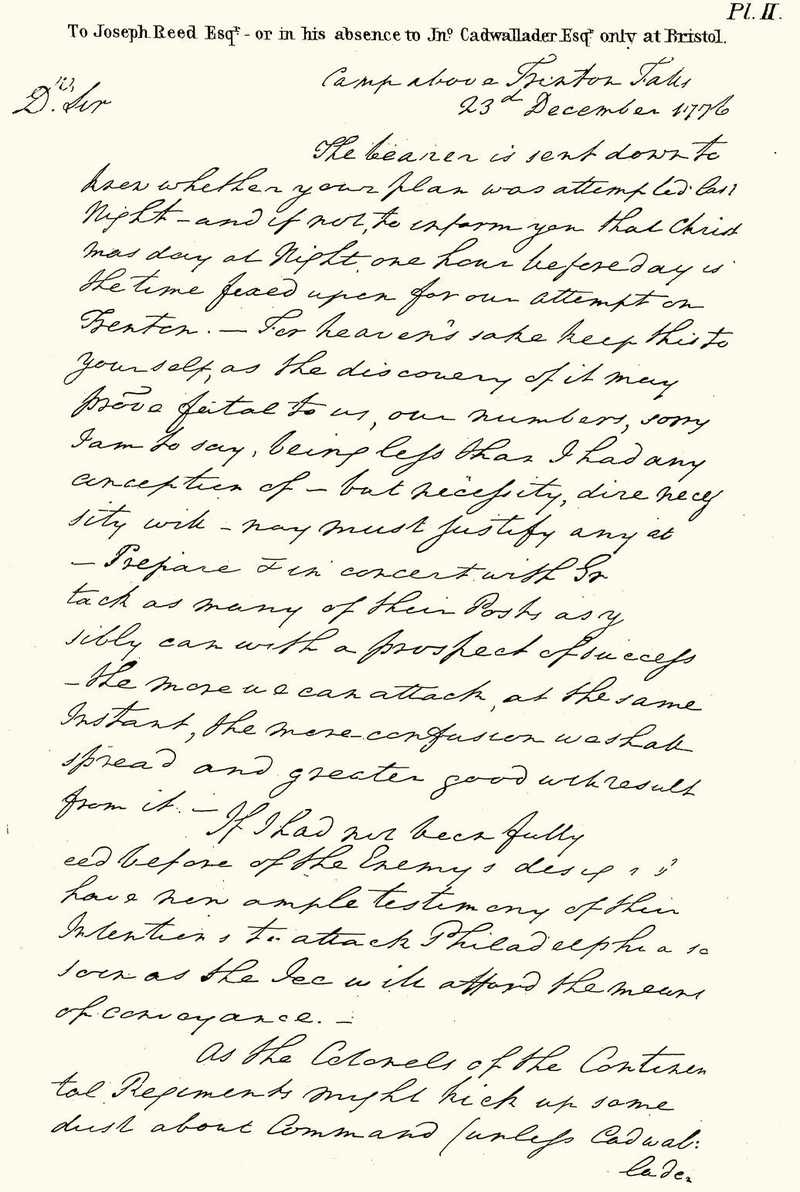 Pl. II.
To Joseph Reed Esqr. - or in his absence to Jno. Cadwallader Esqr. only at Bristol.
Camp above Trenton Falls
23d December 1776
Dr. Sir
The bearer is sent down to
know whether your plan was attempted last
Night – and if not, to inform you that Christ
mas day at Night, one hour before day is
the time fixed upon for our attempt on
Trenton. – For heaven's sake keep this to
yourself, as the discovery of it may
prove fatal to us, our numbers, sorry
I am to say, being less than I had any
conception of – but necessity, dire neces
sity will – nay must justify any at
– Prepare & in concert with Gr
tack as many of their Posts as y
sibly can with a prospect of success
– the more we can attack, at the same
Instant, the more confusion we shall
spread and greater good will result
from it. –
If I had not been fully
ced before of the Enemy's desig
have now ample testimony of their
Intentions to attack Philadelphia so
soon as the Ice will afford the means
of conveyance. –
As the Colonels of the Continen
tal Regiments might kick up some
dust about Command (unless Cadwal:
lader